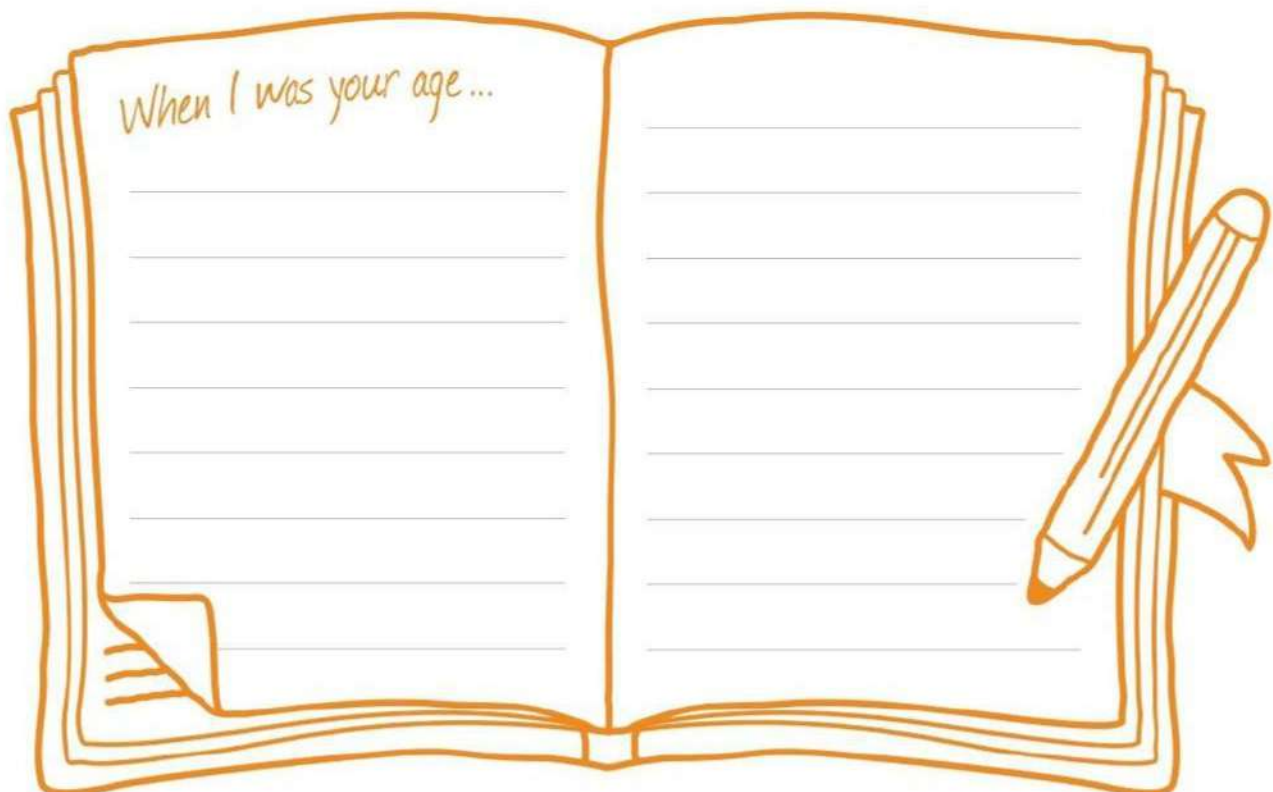 When I was your age...